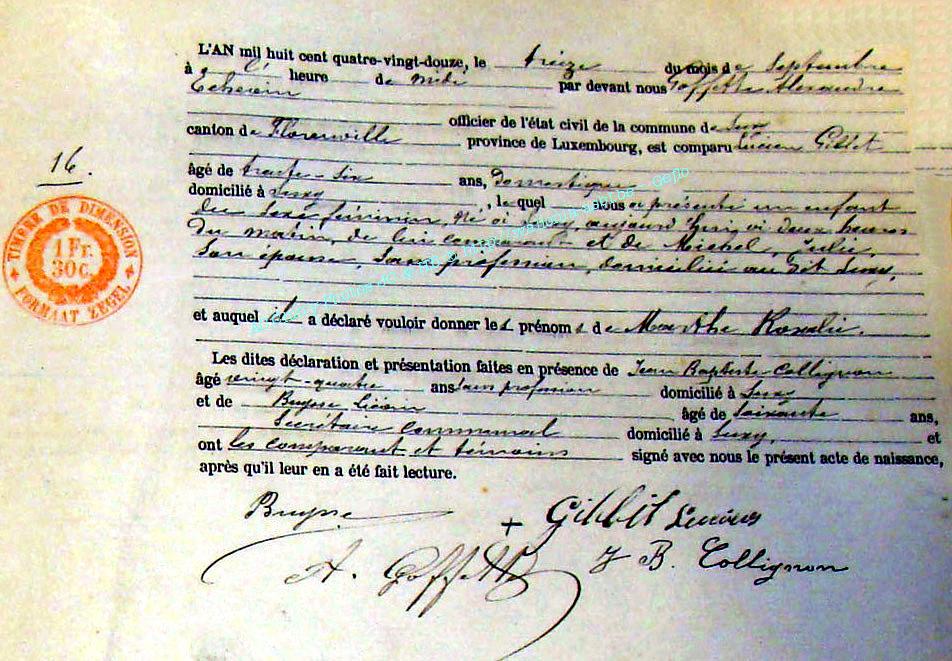 L'AN mil huit cent quatre-vingt-douze, le treize du mois de Septembre
à heure de midi par devant nous Goffette Alexandre
Echevin
officier de l'état civil de la commune de Suxy
canton de Florenville province de Luxembourg, est comparu Lucien Giblet
16.
âgé de trente-six ans, Domestique
domicilié à Suxy, lequel nous a présenté un enfant
du sexe féminin, né à Suxy, aujourd'hui, à deux heures
du matin, de lui comparant et de Michel, Julie,
son épouse, sans profession, domiciliée au dit Suxy,
TIMBRE DE DIMENSION
1 Fr.
30 C.
FORMAAT ZEGEL
et auquel il a déclaré vouloir donner les prénoms de Marthe Rosalie.
Les dites déclaration et présentation faites en présence de Jean Baptiste Collignon
âgé vingt-quatre ans sans profession domicilié à Suxy
et de Buysse âgé de soixante ans,
Secrétaire communal domicilié à Suxy, et
ont les comparant et témoins signé avec nous le présent acte de naissance,
après qu'il leur en a été fait lecture.
Buysse + Giblet Lucien
A. Goffette J B. Collignon